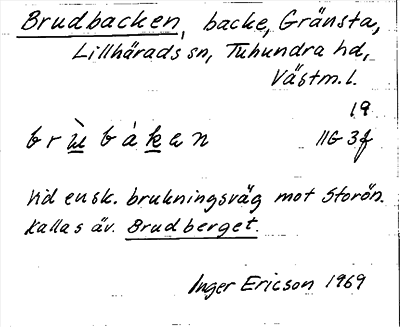 Brudbacken, backe, Gränsta,
Lillhärads sn, Tuhundra hd,
Västm. l.
19
brὺ bá ken 11G 3f
Vid ensk. brukningsväg mot Storön.
Kallas äv. Brudberget.
Inger Ericson 1969